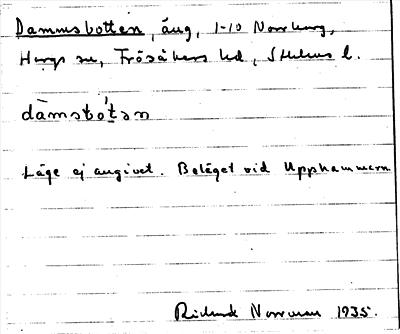 Dammsbotten, äng, 1-10 Norrhargs,
Hargs sn, Frösåkers hd, Sthlms l.
dàmsbót̀ən
Läge ej angivet. Beläget vid Upphammarn
Rickard Norrman 1935.